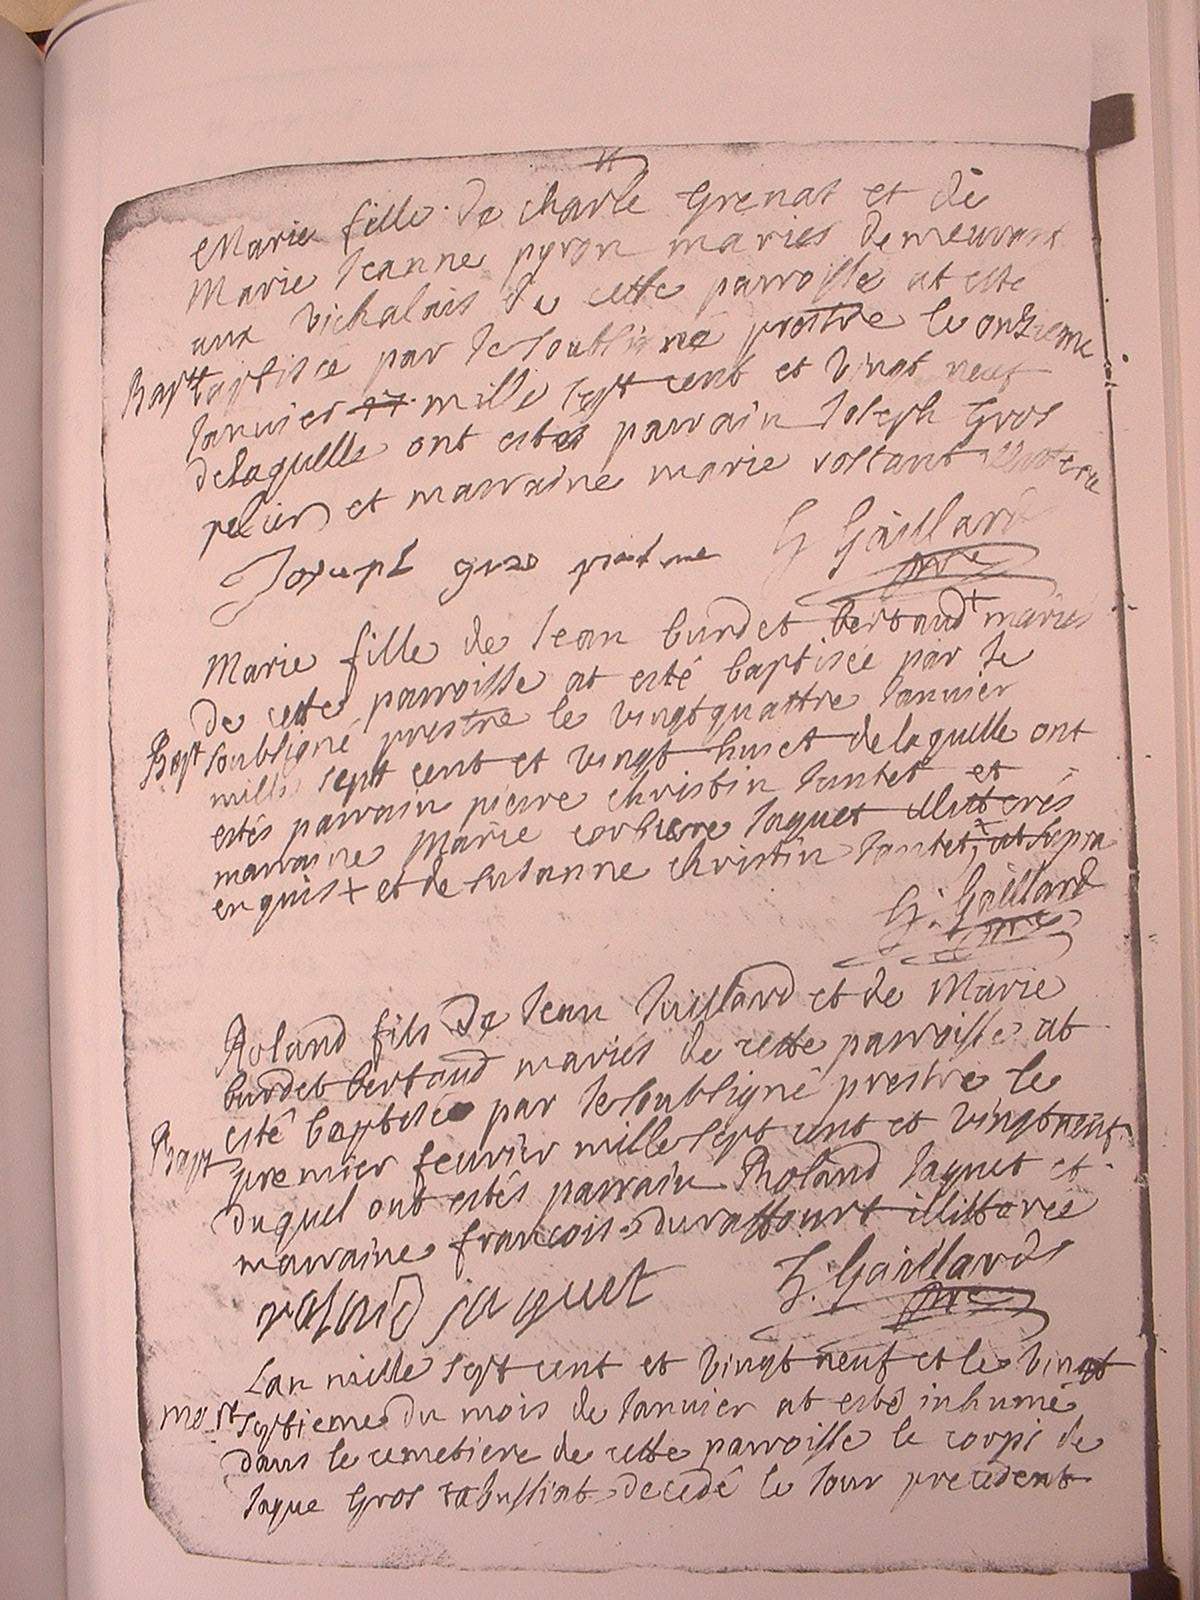 Marie fille de Charle Grenat et de
Marie Jeanne pyron mariés demeurant
aux Vichalais de cette parroisse at esté
Bapt baptisée par Je soubsigné prestre le onzieme
Janvier mille sept cent et vingt neuf
delaquelle ont estés parrain Joseph Gros
et marraine marie rostant
Joseph gros G Gaillard
pre
Marie fille de Jean burdet bertaud + mariés
de cette parroisse at esté baptisée par Je
Bapt soubsigné prestre le vingtquattre Janvier
mille sept cent et vingt huict delaquelle ont
estés parrain pierre christin Jantet et
marraine Marie corbiere Jaquet illitterés
enquis + et de Susanne christin Jantet, ut supra
G. Gaillard
pre
Roland fils de Jean Juillard et de Marie
burdet bertaud mariés de cette parroisse at
esté baptisée par Je soubsigné prestre le
Bapt premier fevrier mille sept cent et vingt neuf
duquel ont estés parrain Roland Jaquet et
marraine francoise duraffourt illitterée
roland jaquet G. Gaillard
pre
Lan mille sept cent et vingt neuf et le vingt
mort septieme du mois de Janvier at esté inhumé
dans le cemetiere de cette parroisse le corps de
Jaque Gros tabussiat decedé le Jour precedent